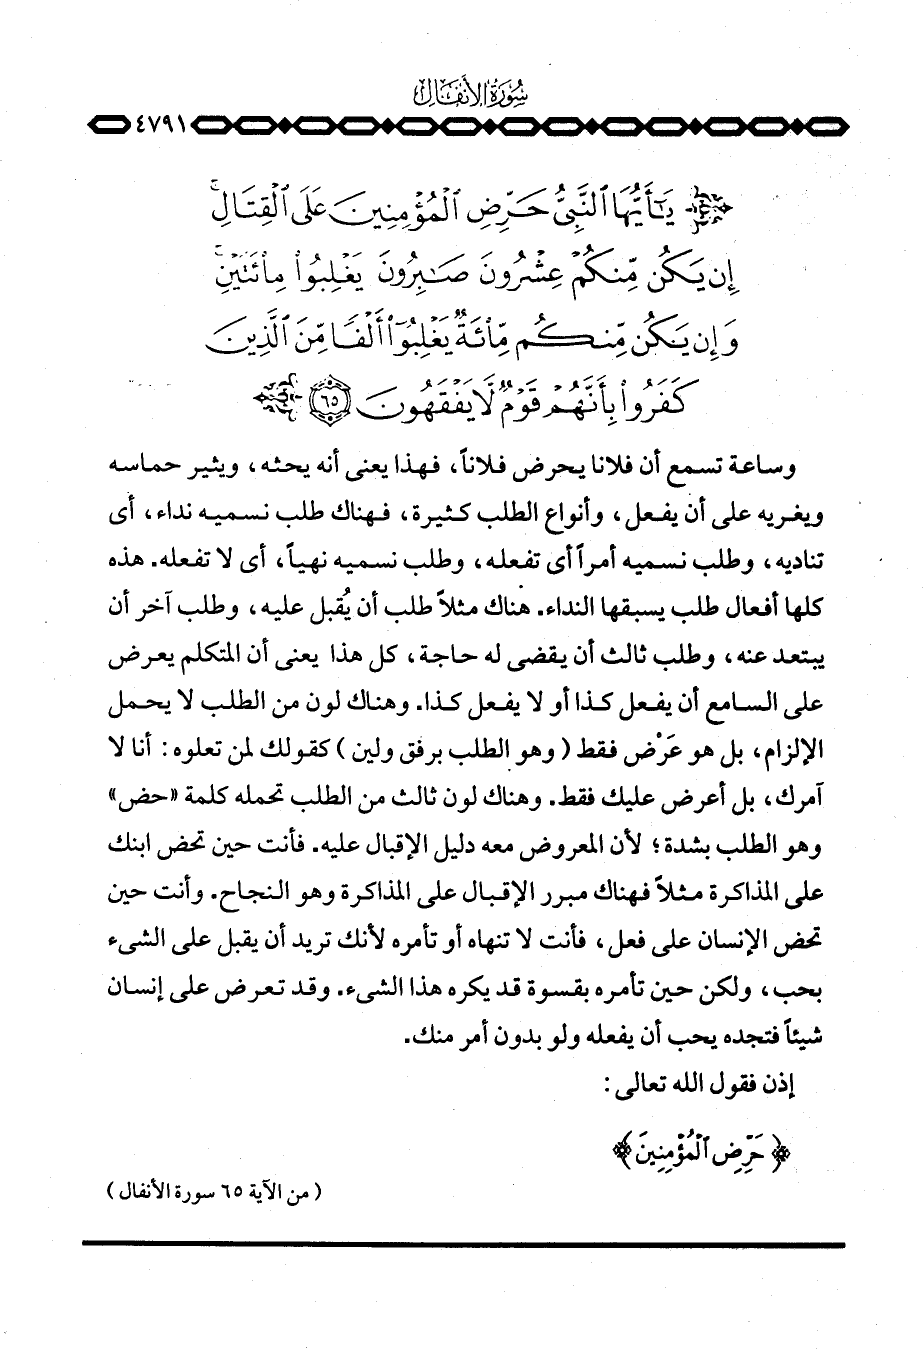 سُورَةُ الأَنفَالِ
٤٧٩١
يَٰٓأَيُّهَا ٱلنَّبِىُّ حَرِّضِ ٱلْمُؤْمِنِينَ عَلَى ٱلْقِتَالِ ۚ
إِن يَكُن مِّنكُمْ عِشْرُونَ صَٰبِرُونَ يَغْلِبُوا۟ مِا۟ئَتَيْنِ ۚ
وَإِن يَكُن مِّنكُم مِّا۟ئَةٌ يَغْلِبُوٓا۟ أَلْفًا مِّنَ ٱلَّذِينَ
كَفَرُوا۟ بِأَنَّهُمْ قَوْمٌ لَّا يَفْقَهُونَ ٦٥
وساعة تسمع أن فلانا يحرض فلاناً، فهذا يعنى أنه يحثه، ويثير حماسه
ويغريه على أن يفعل، وأنواع الطلب كثيرة، فهناك طلب نسميه نداء، أى
تناديه، وطلب نسميه أمراً أى تفعله، وطلب نسميه نهياً، أى لا تفعله. هذه
كلها أفعال طلب يسبقها النداء. هناك مثلاً طلب أن يُقبل عليه، وطلب آخر أن
يبتعد عنه، وطلب ثالث أن يقضى له حاجة، كل هذا يعنى أن المتكلم يعرض
على السامع أن يفعل كذا أو لا يفعل كذا. وهناك لون من الطلب لا يحمل
الإلزام، بل هو عَرْض فقط (وهو الطلب برفق ولين) كقولك لمن تعلوه: أنا لا
آمرك، بل أعرض عليك فقط. وهناك لون ثالث من الطلب تحمله كلمة «حض»
وهو الطلب بشدة؛ لأن المعروض معه دليل الإقبال عليه. فأنت حين تحض ابنك
على المذاكرة مثلاً فهناك مبرر الإقبال على المذاكرة وهو النجاح. وأنت حين
تحض الإنسان على فعل، فأنت لا تنهاه أو تأمره لأنك تريد أن يقبل على الشىء
بحب، ولكن حين تأمره بقسوة قد يكره هذا الشىء. وقد تعرض على إنسان
شيئاً فتجده يحب أن يفعله ولو بدون أمر منك.
إذن فقول الله تعالى:
﴿حَرِّضِ ٱلْمُؤْمِنِينَ﴾
(من الآية ٦٥ سورة الأنفال)